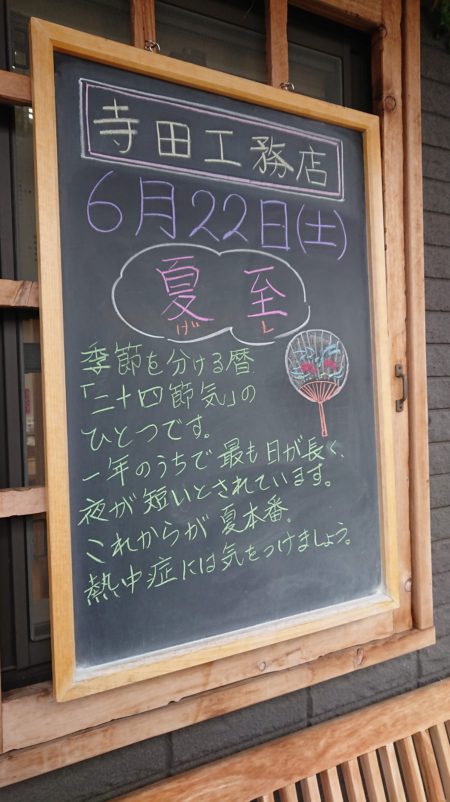 寺田工務店
6月22日(土)
夏至
げし
季節を分ける暦
「二十四節気」の
ひとつです。
一年のうちで最も日が長く、
夜が短いとされています。
これからが夏本番。
熱中症には気をつけましょう。